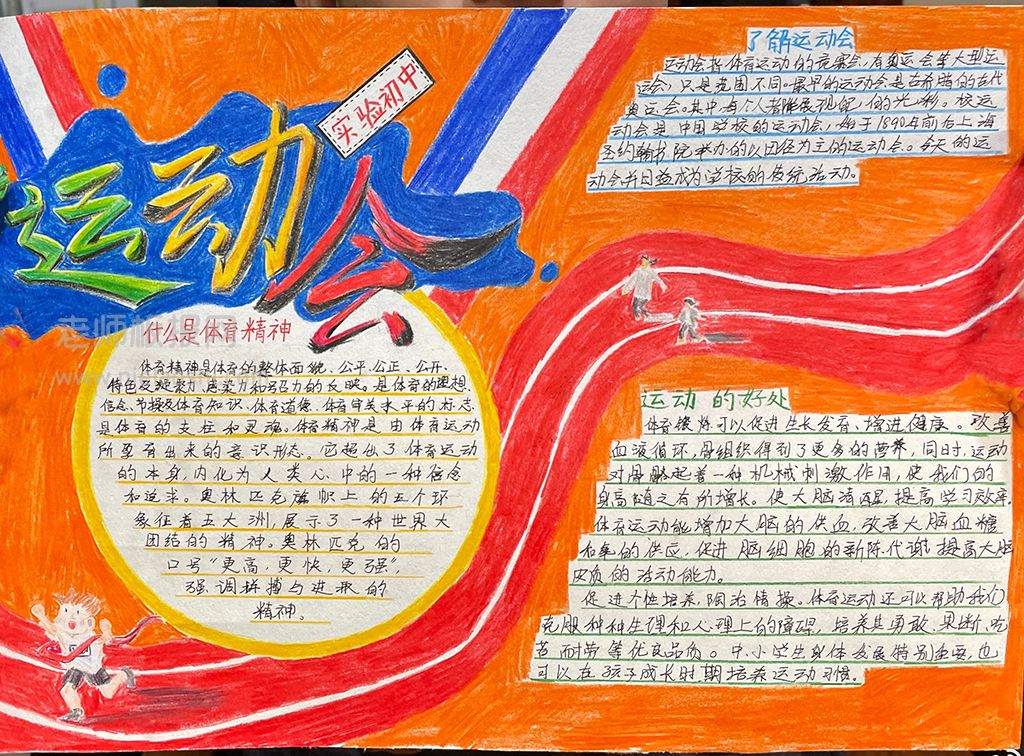 实验初中
运动会
什么是体育精神
体育精神是体育的整体面貌、公平、公正、公开、
特色及凝聚力、感染力和号召力的反映。是体育的理想、
信念、节操及体育知识、体育道德、体育审美水平的标志,
是体育的支柱和灵魂。体育精神是由体育运动
所孕育出来的意识形态。它超出了体育运动
的本身,内化为人类心中的一种信念
和追求。奥林匹克旗帜上的五个环
象征着五大洲,展示了一种世界大
团结的精神。奥林匹克的
口号"更高,更快,更强",
强调拼搏与进取的
精神。
了解运动会
运动会指体育运动的竞赛会,有奥运会等大型运
运会,只是范围不同。最早的运动会是古希腊的古代
奥运会。其中,每个人都能展现 的光彩。校运
动会是中国学校的运动会,始于1890年前后上海
圣约翰书院举办的以田径为主的运动会。今天的运
动会并日益成为学校的传统活动。
运动的好处
体育锻炼可以促进生长发育,增进健康。改善
血液循环,骨组织得到了更多的营养,同时,运动
对骨骼起着一种机械刺激作用,使我们的
身高随之有所增长。使大脑清醒,提高学习效率。
体育运动能增加大脑的供血,改善大脑血糖
和氧的供应,促进脑细胞的新陈代谢,提高大脑
皮质的活动能力。
促进个性培养,陶冶情操。体育运动还可以帮助我们
克服种种生理和心理上的障碍,培养其勇敢、果断、吃
苦耐劳等优良品质。中小学生身体发展特别重要,也
可以在孩子成长时期培养运动习惯。